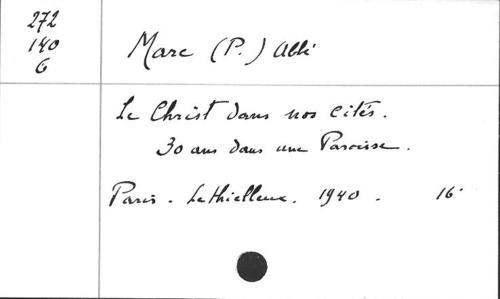 272
140
6
Marc (P.) Abbé
Le Christ dans nos cités.
30 ans dans une Paroisse.
Paris - Lethielleux. 1940. 16°